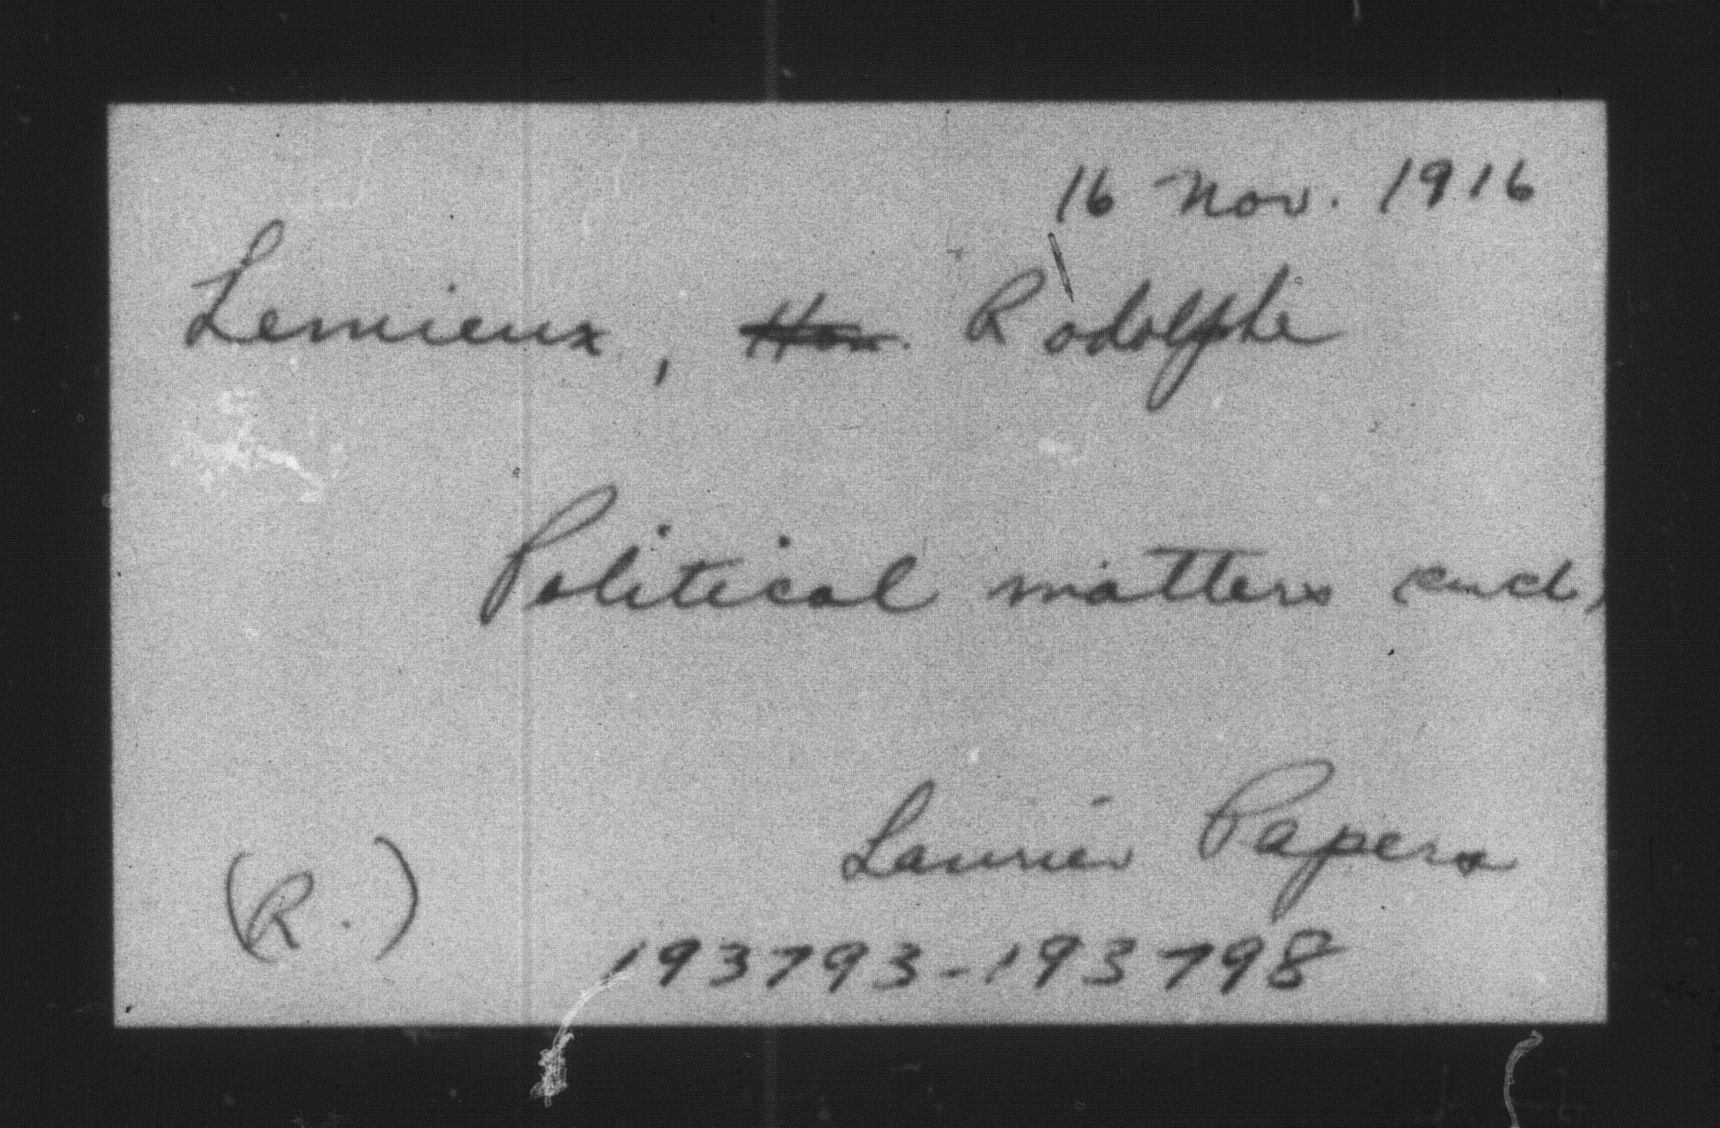 16 Nov. 1916
Lemieux, Hon. Rodolphe
Political matters (encl)
Laurier Papers
(R.)
193793-193798